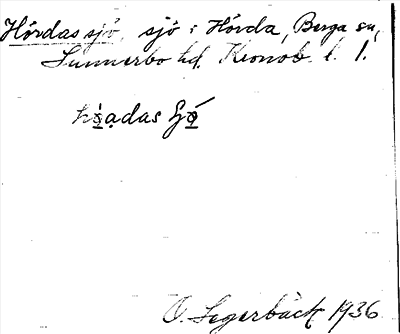 Hördas sjö, sjö i Hörda, Berga sn,
Sunnerbo hd. Kronob. l. 1.
sjö
O. Segerbäck 1936